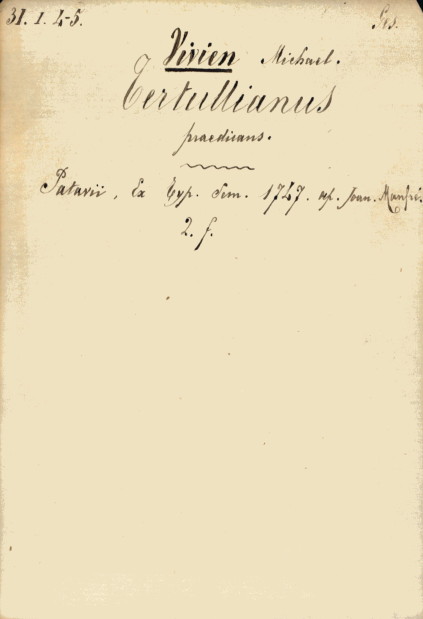 31. 1. 4-5.
Vivien Michael.
Tertullianus
praedicans.
Patavii, Ex Typ. Sem. 1747. ap. Joan. Manfrè.
2. f.